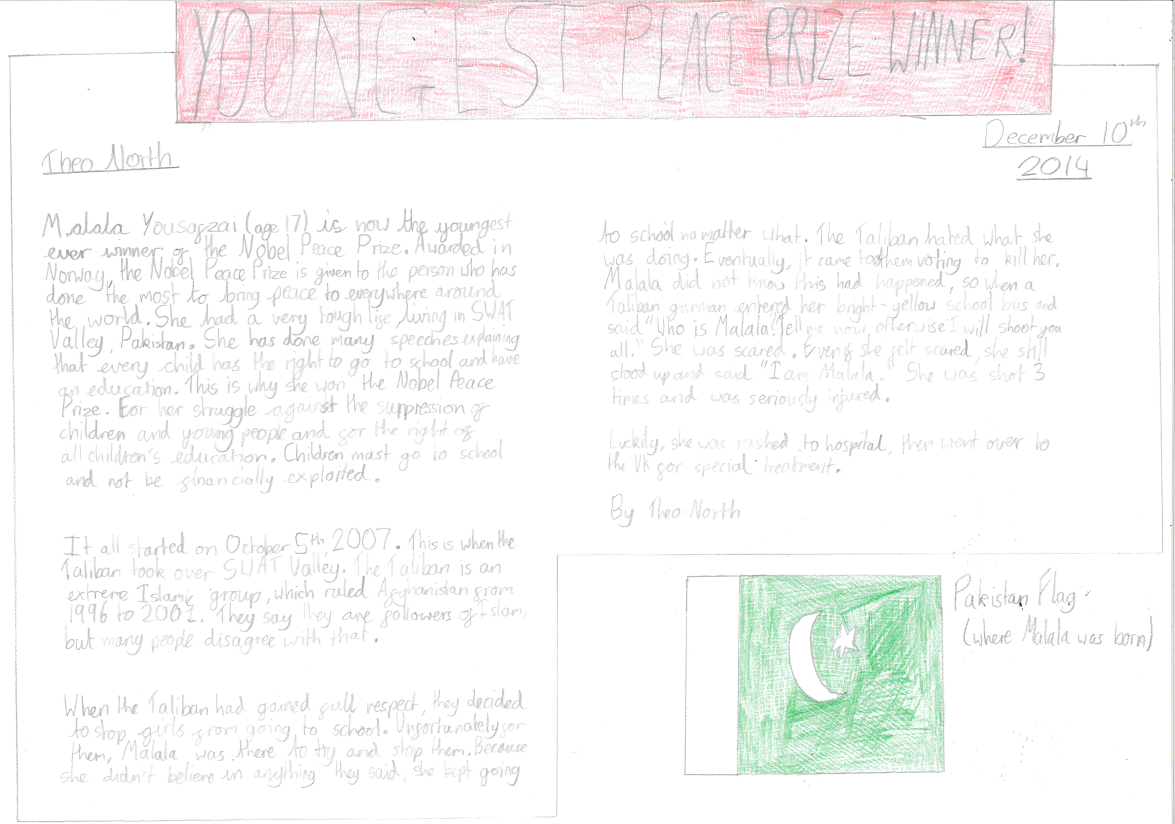 YOUNGEST PEACE PRIZE WINNER!
Theo North
December 10th
2014
Malala Yousagzai (age 17) is now the youngest
ever winner of the Nobel Peace Prize. Awarded in
Norway, the Nobel Peace Prize is given to the person who has
done the most to bring peace to everywhere around
the world. She had a very tough life, living in SWAT
Valley, Pakistan. She has done many speeches explaining
that every child has the right to go to school and have
an education. This is why she won the Nobel Peace
Prize. For her struggle against the suppression of
children and young people and for the right of
all children's education. Children must go to school
and not be financially exploited.
It all started on October 5th, 2007. This is when the
Taliban took over SWAT Valley. The Taliban is an
extreme Islamic group, which ruled Afghanistan from
1996 to 2001. They say they are followers of Islam,
but many people disagree with that.
When the Taliban had gained full respect, they decided
to stop girls from going to school. Unfortunately for
them, Malala was there to try and stop them. Because
she didn't believe in anything they said, she kept going
to school no matter what. The Taliban hated what she
was doing. Eventually, it came to them voting to kill her.
Malala did not know this had happened, so when a
Taliban gunman entered her bright-yellow school bus and
said "Who is Malala? Tell me now, otherwise I will shoot you
all." She was scared. Even if she felt scared, she still
stood up and said "I am Malala." She was shot 3
times and was seriously injured.
Luckily, she was rushed to hospital, then went over to
the UK for special treatment.
By Theo North
Pakistan Flag
(where Malala was born)